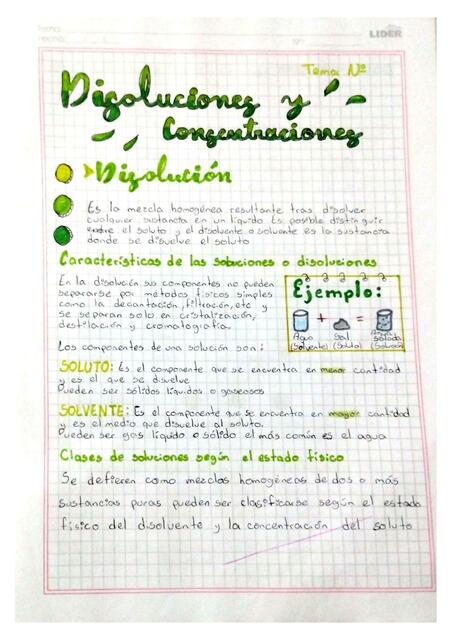 LIDER
Tema: Nº
Disoluciones y
Concentraciones
Disolución
Es la mezcla homogénea resultante tras disolver
cualquier sustancia en un líquido Es posible distinguir
entre el soluto y el disolvente o solvente es la sustancia
donde se disuelve el soluto
Características de las soluciones o disoluciones
En la disolución sus componentes no pueden
separarse por métodos físicos simples
como la decantación, filtración, etc y
se separan solo en cristalización,
destilación y cromatografía.
Ejemplo:
+ =
Agua Sal Agua salada
(Solvente) (Soluto) (Solución)
Los componentes de una solución son:
SOLUTO: Es el componente que se encuentra en menor cantidad
y es el que se disuelve
Pueden ser sólidos líquidos o gaseosos
SOLVENTE: Es el componente que se encuentra en mayor cantidad
y es el medio que disuelve al soluto.
Pueden ser gas líquido o sólido el más común es el agua
Clases de soluciones según el estado físico
Se defieren como mezclas homogéneas de dos o más
sustancias puras pueden ser clasificarse según el estado
físico del disolvente y la concentración del soluto